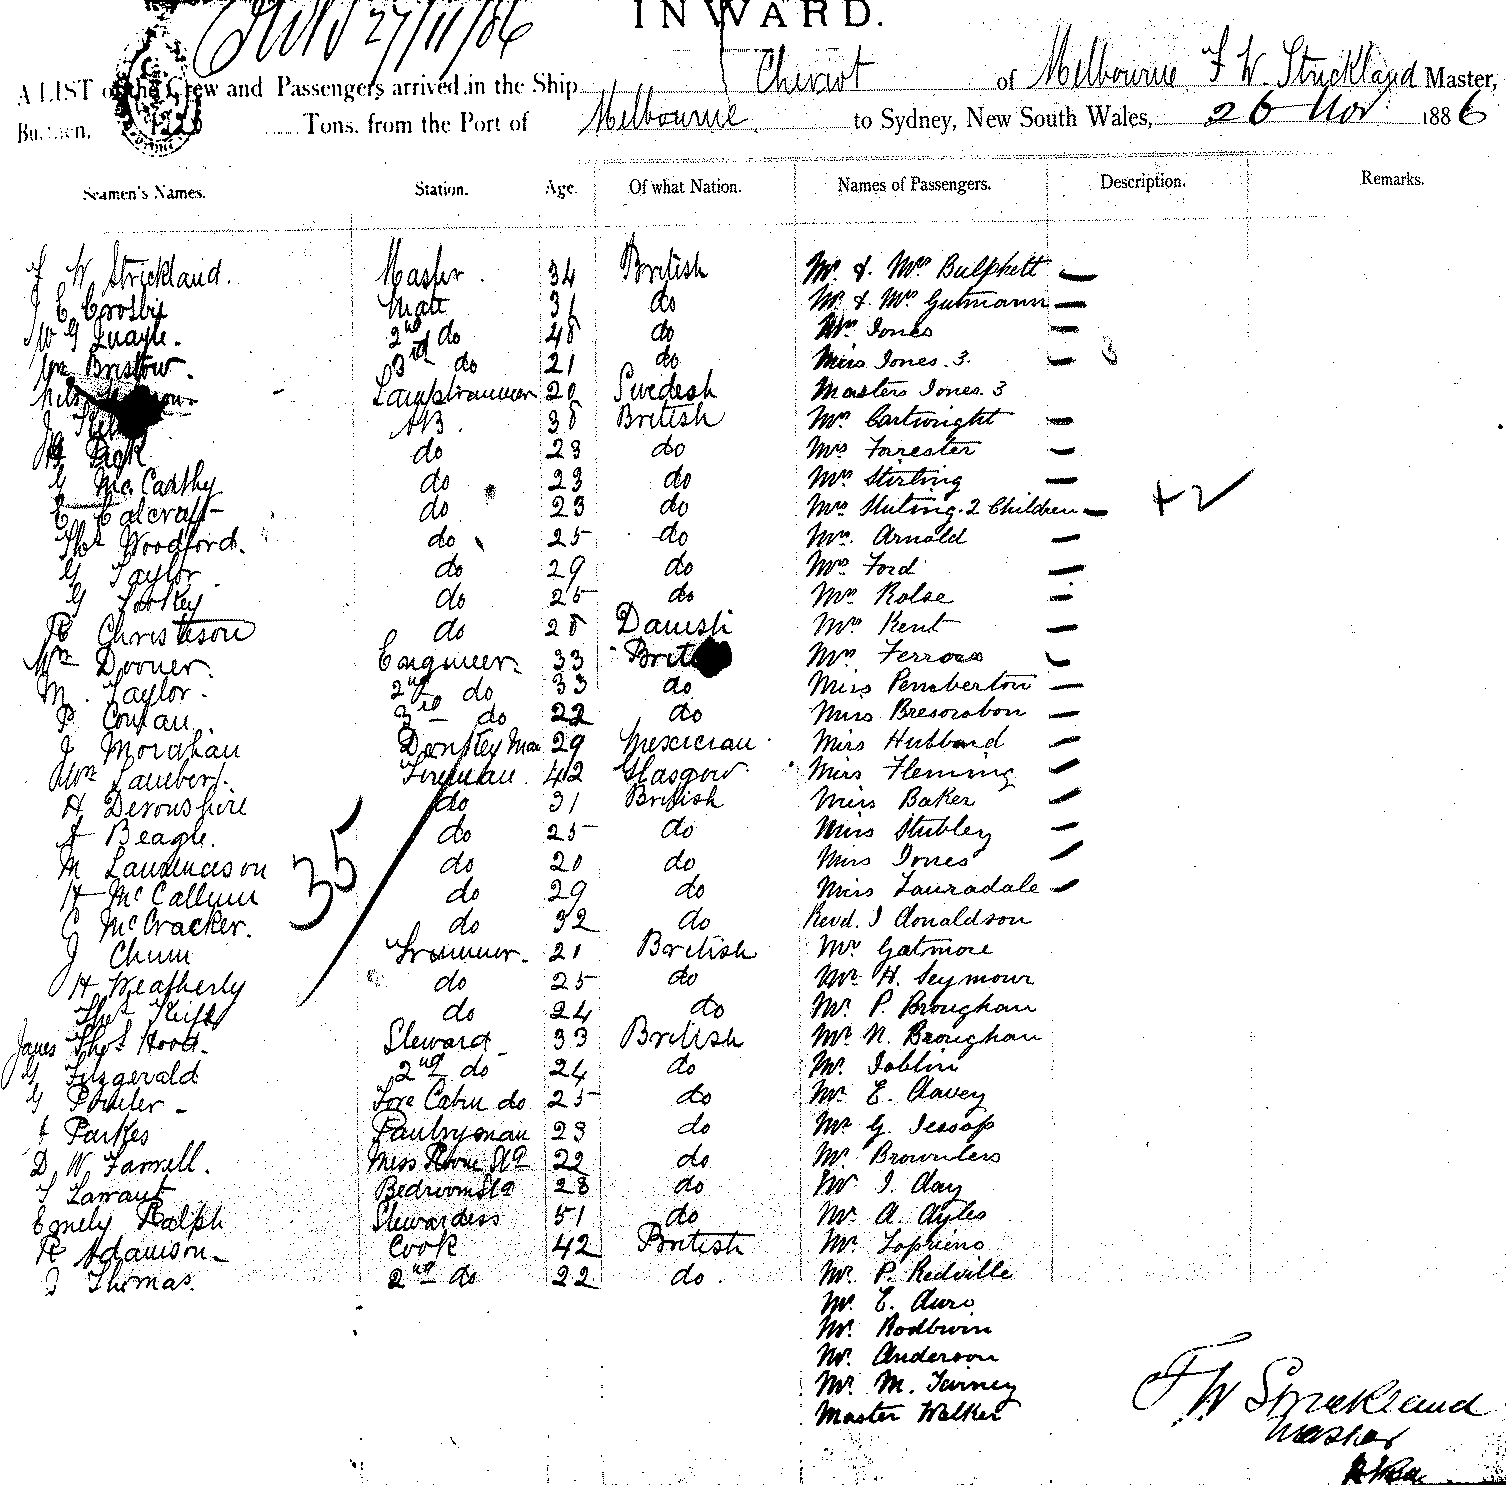 INWARD.
27/11/86
A LIST of the Crew and Passengers arrived in the Ship Cheviot of Melbourne F W. Strickland Master,
Burthen, Tons, from the Port of Melbourne to Sydney, New South Wales, 26 Nov 1886
Seamen's Names. Station. Age. Of what Nation. Names of Passengers. Description. Remarks.
F W Strickland. Master. 34 British Mr. & Mrs Bulpkett —
J E Crosby Mate 31 do Mr. & Mrs Gutmann —
W G Quayle. 2nd do 48 do Mrs Jones —
Wm Bristow. 3rd do 21 do Miss Jones. 3. —
Lamptrimmer 20 Swedesh Masters Jones. 3
J AB. 38 British Mrs Cartwright —
Dick do 23 do Mrs Forester —
G Mc. Carthy do 23 do Mrs Stirling —
E Calcraft do 23 do Mrs Nuting. 2 Children — +2 ✓
Thos Woodford. do 25 do Mrs. Arnald —
G Taylor do 29 do Mrs Ford —
G do 25 do Mrs Rolse —
R Christeson do 28 Danish Mrs Kent —
Wm Dooner. Engineer. 33 Brit Mrs Ferrows
M. Taylor. 2nd do 33 do Miss Pemberton —
P. 3rd do 22 do Miss —
J Morahan Donkey Man 29 Mexician Miss Hubbard —
Wm Lambert. Fireman. 42 Glasgow Miss Fleming
H Devonshire do 31 British Miss Baker
A Beagle. do 25 do Miss Stubley
M Laurenceson do 20 do Miss Jones
H McCallum do 29 do Miss Lauradale
C McCracker. do 32 do Revd. J Donaldson
J Chum Trimmer. 21 British Mr Gatmore
H Weatherly do 25 do Mr H. Seymour
Thos Keith do 24 do Mr. P. Broughan
James Thos Hood. Steward 33 British Mr N. Broughan
G Fitzgerald 2nd do 24 do Mr. Joblin
G Fowler - Fore Cabin do 25 do Mr. E. Davey
J Parkes Pantryman 23 do Mr G. Jessop
D. W. Farrell. Mess Room Std 22 do Mr. Brownlers
J Larraut Bedroom Std 28 do Mr J. Day
Emely Ralph Stewardess 51 do Mr. A. Ayles
R Adamson - Cook 42 British Mr. Lopkins
J Thomas. 2nd do 22 do. Mr. P. Redville
35
Mr. E. Duro
Mr. Rodbwin
Mr. Anderson
Mr. M. Tarney
Master Walker
F W Strickland
Master